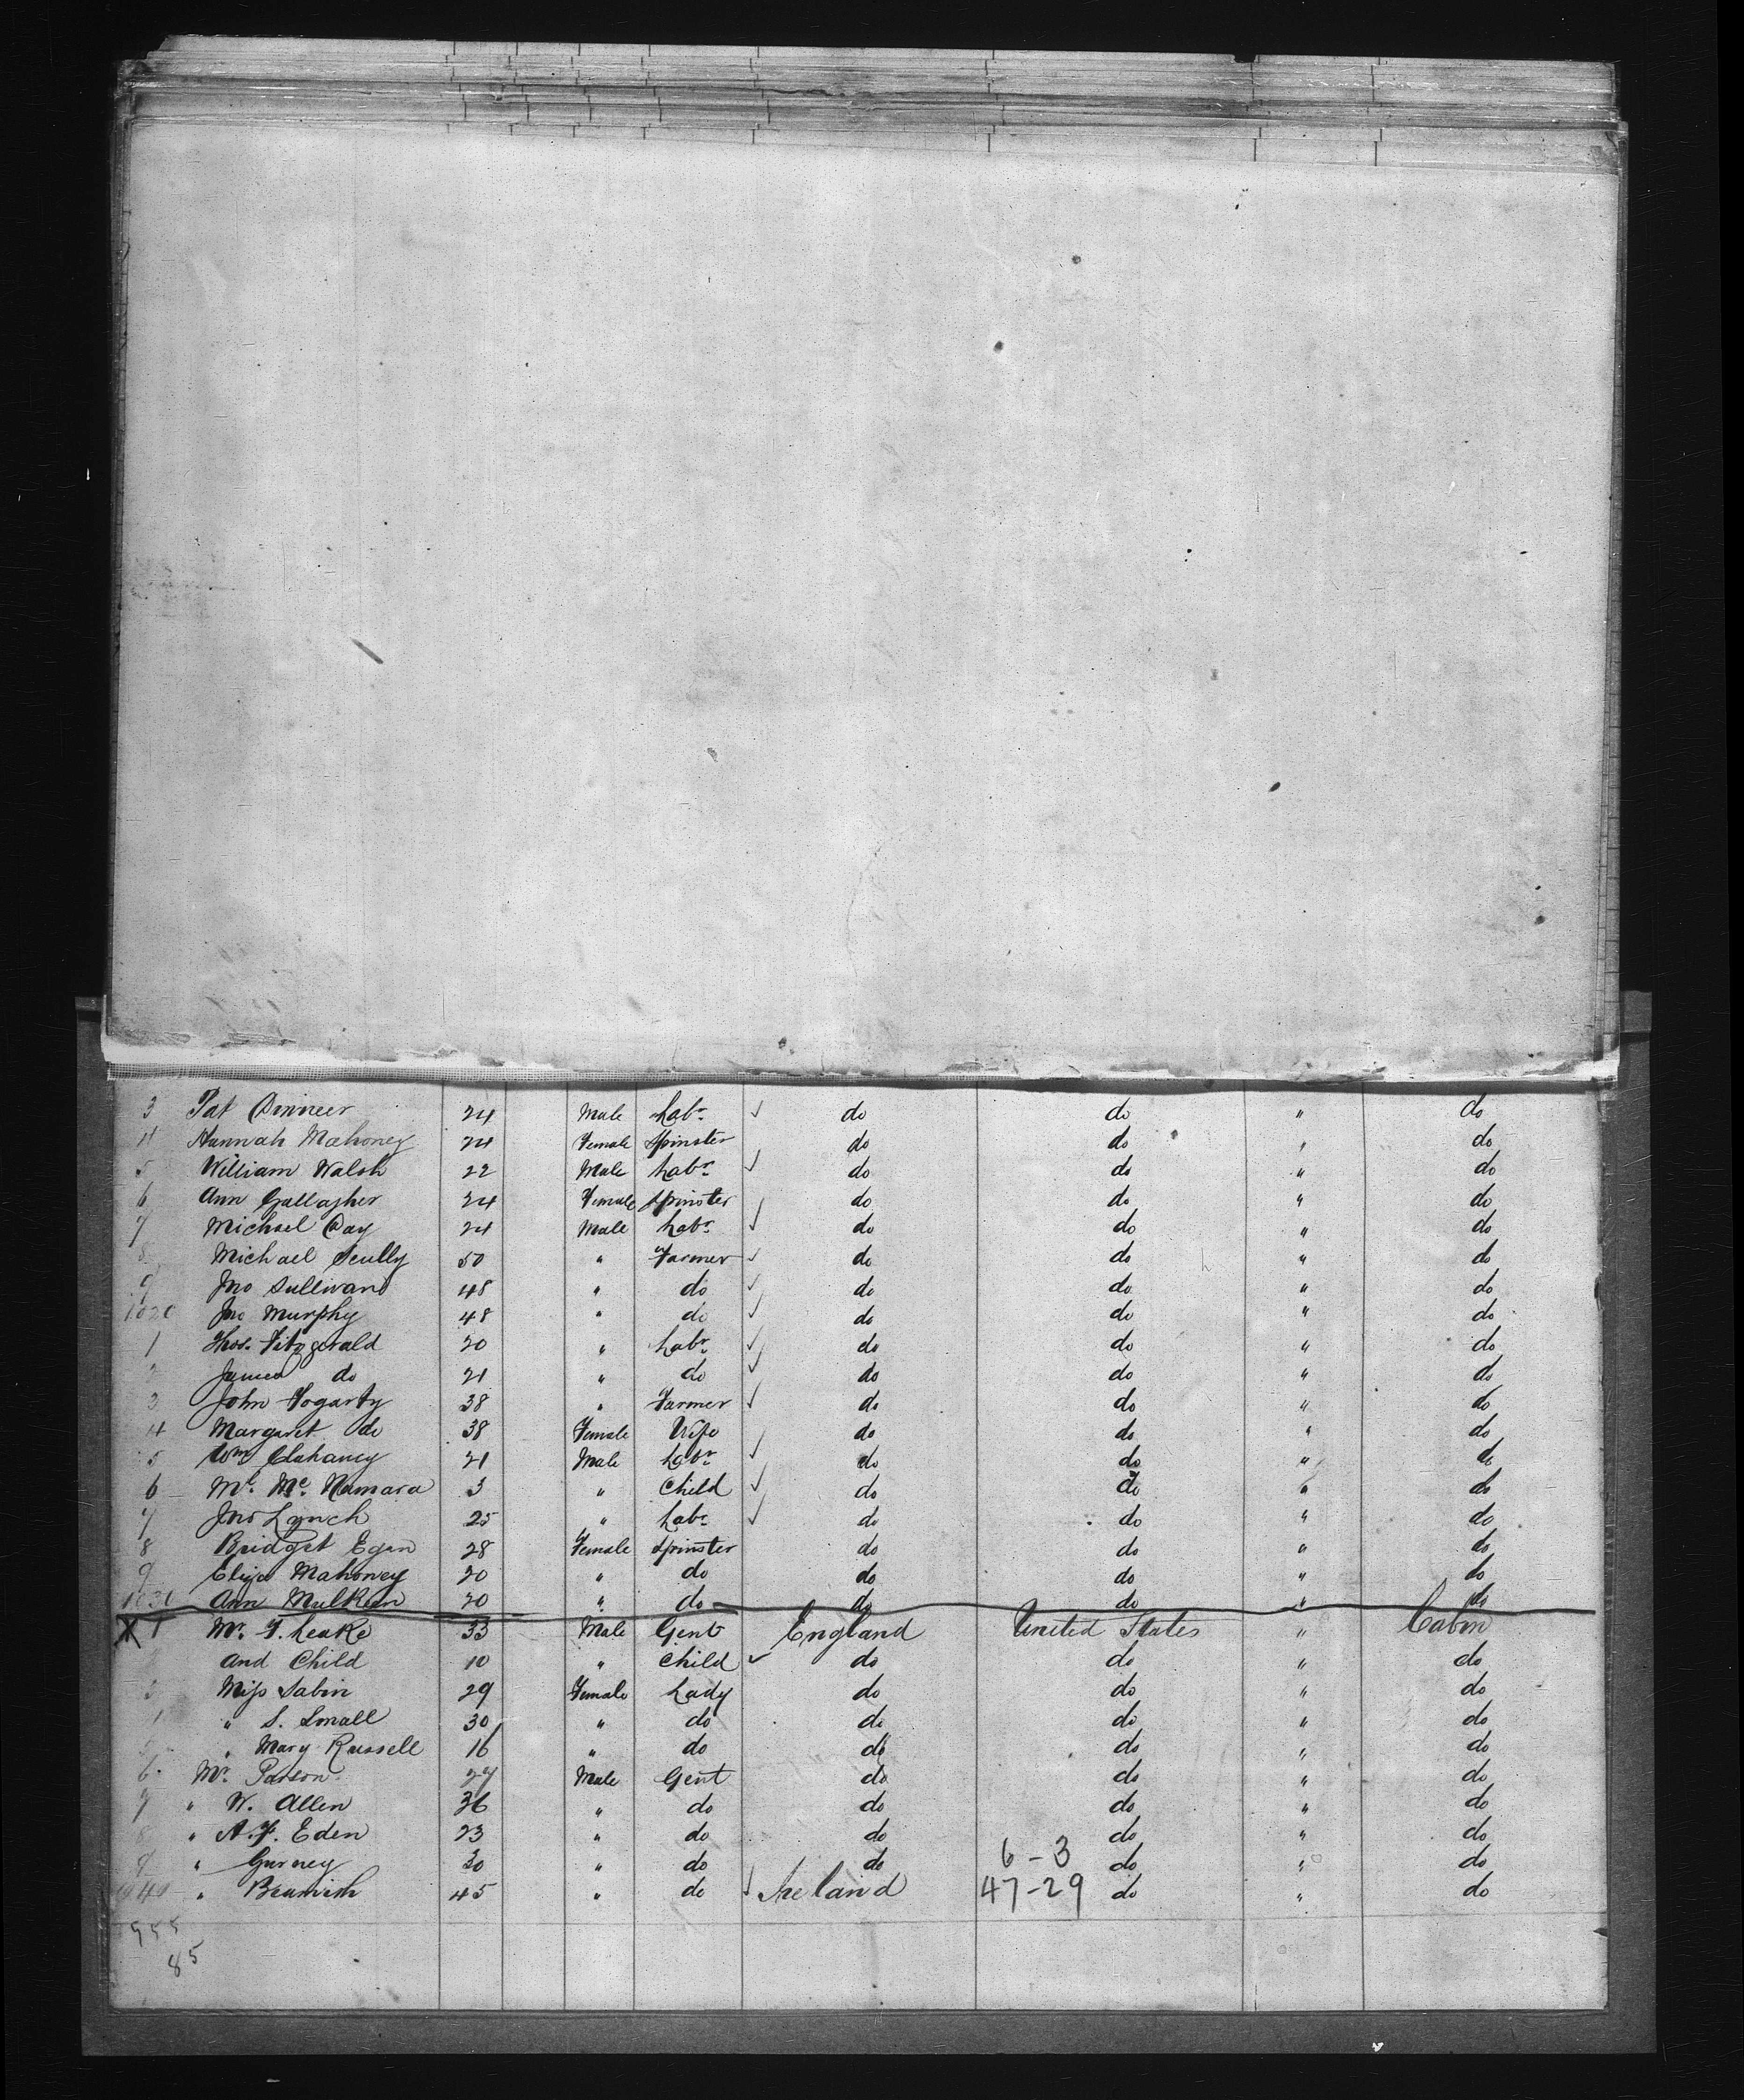 3 Pat Dinneer 24 Male Labr ✓ do do " do
4 Hannah Mahoney 24 Female Spinster do do " do
5 William Walsh 22 Male Labr ✓ do do " do
6 Ann Gallagher 24 Female Spinster do do " do
7 Michael Day 24 Male Labr ✓ do do " do
8 Michael Scully 50 " Farmer ✓ do do " do
9 Jno Sullivan 48 " do ✓ do do " do
1020 Jno Murphy 48 " do ✓ do do " do
1 Thos. Fitzgerald 20 " Labr ✓ do do " do
2 James do 21 " do ✓ do do " do
3 John Fogarty 38 " Farmer ✓ do do " do
4 Margaret do 38 Female Wife do do " do
5 Wm Clahancy 21 Male Labr ✓ do do " do
6 Ml. Mc. Namara 3 " Child ✓ do do " do
7 Jno Lynch 25 " Labr ✓ do do " do
8 Bridget Egan 28 Female Spinster do do " do
9 Eliza Mahoney 20 " do do do " do
1030 Ann Mulkern 20 " do do do " do
X 1 Mr. F. Leake 33 Male Gent England United States " Cabin
And Child 10 " Child ✓ do do " do
3 Miss Sabin 29 Female Lady do do " do
" S. Small 30 " do do do " do
" Mary Russell 16 " do do do " do
6 Mr. Parson 27 Male Gent do do " do
7 " W. Allen 36 " do do do " do
8 " A. F. Eden 23 " do do do " do
9 " Gurney 30 " do do 6-3 do " do
1040 " Beamish 45 " do ✓ Ireland 47-29 do " do
955
85